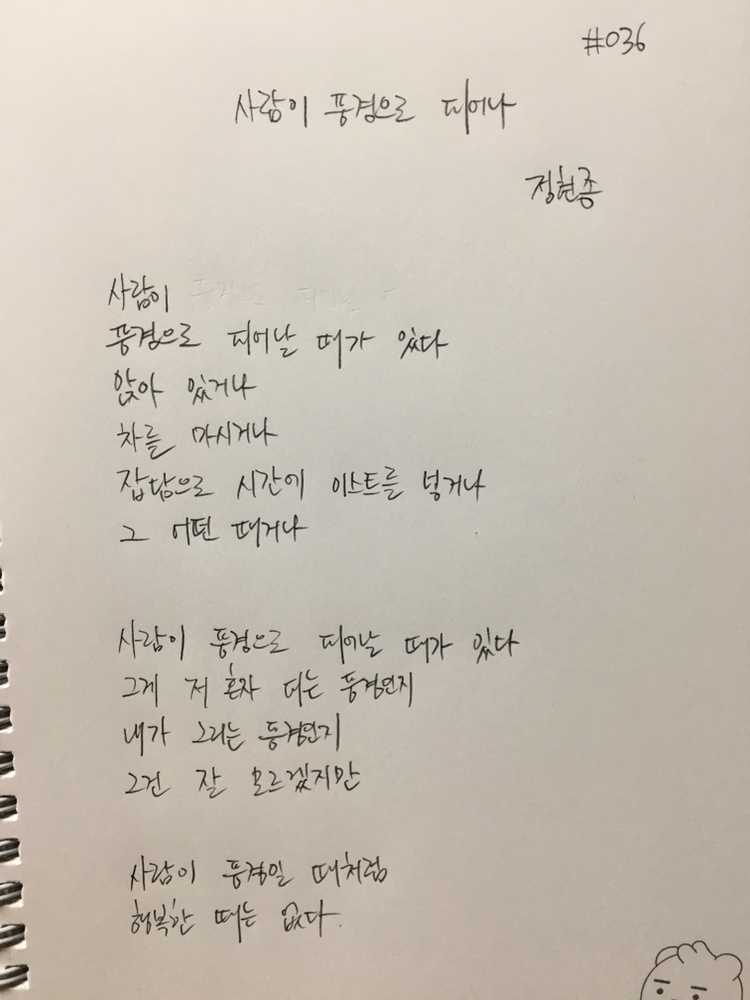 #036
사람이 풍경으로 피어나
정현종
사람이
풍경으로 피어날 때가 있다
앉아 있거나
차를 마시거나
잡담으로 시간에 이스트를 넣거나
그 어떤 때거나
사람이 풍경으로 피어날 때가 있다
그게 저 혼자 피는 풍경인지
내가 그리는 풍경인지
그건 잘 모르겠지만
사람이 풍경일 때처럼
행복한 때는 없다.